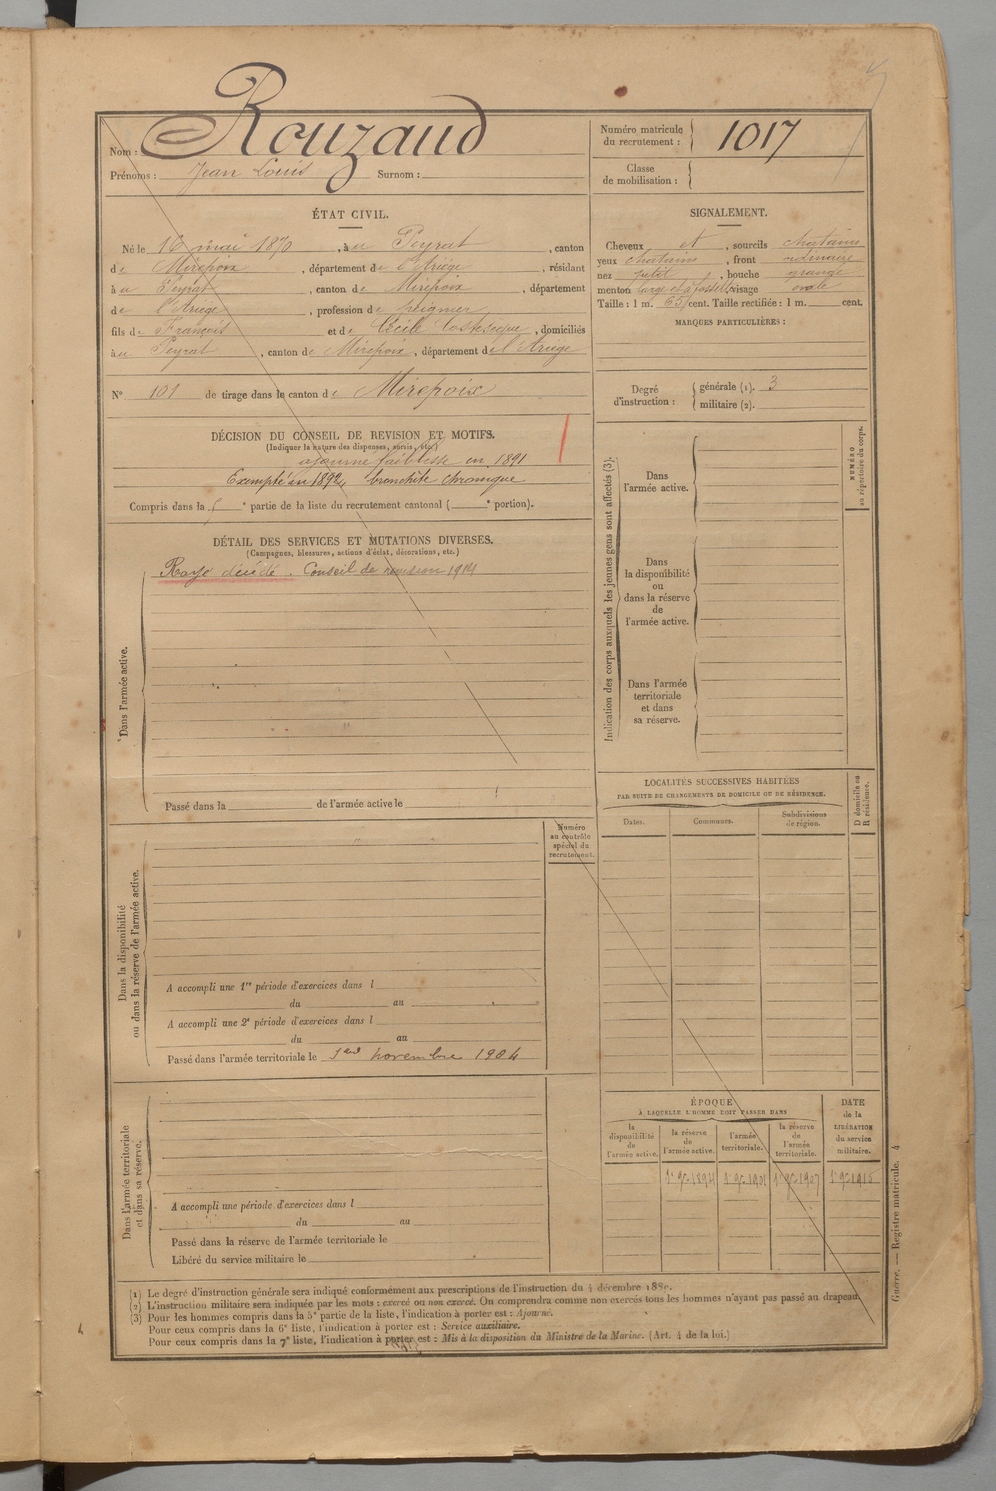 Nom : Rouzaud
Prénoms : Jean Louis Surnom :
Numéro matricule du recrutement : 1017
Classe de mobilisation :
ÉTAT CIVIL.
Né le 16 mai 1870, à u Peyrat, canton
de Mirepoix, département de l'Ariége, résidant
à u Peyrat, canton de Mirepoix, département
de l'Ariége, profession de peigneur
fils de François et de Cécile, domiciliés
à u Peyrat, canton de Mirepoix, département de l'Ariége
N° 101 de tirage dans le canton de Mirepoix
SIGNALEMENT.
Cheveux et, sourcils chatains
yeux chatains, front ordinaire
nez petit, bouche grande
menton large et à fossette, visage ovale
Taille : 1 m. 65 cent. Taille rectifiée : 1 m. cent.
MARQUES PARTICULIÈRES :
Degré d'instruction : générale (1). 3
militaire (2).
DÉCISION DU CONSEIL DE REVISION ET MOTIFS.
(Indiquer la nature des dispenses, sursis, etc.)
ajourné faiblesse en 1891
Exempté en 1892, bronchite chronique
Compris dans la e partie de la liste du recrutement cantonal ( e portion).
DÉTAIL DES SERVICES ET MUTATIONS DIVERSES.
(Campagnes, blessures, actions d'éclat, décorations, etc.)
Rayé décédé. Conseil de revision 1914
Dans l'armée active.
Passé dans la de l'armée active le
Indication des corps auxquels les jeunes gens sont affectés (3).
Dans l'armée active.
Dans la disponibilité ou dans la réserve de l'armée active.
Dans l'armée territoriale et dans sa réserve.
NUMÉRO au répertoire du corps.
LOCALITÉS SUCCESSIVES HABITÉES
PAR SUITE DE CHANGEMENTS DE DOMICILE OU DE RÉSIDENCE.
Dates. Communes. Subdivisions de région.
D domicile ou R résidence.
Numéro au contrôle spécial du recrutement.
Dans la disponibilité ou dans la réserve de l'armée active.
A accompli une 1re période d'exercices dans l
du au
A accompli une 2e période d'exercices dans l
du au
Passé dans l'armée territoriale le 1er novembre 1904
Dans l'armée territoriale et dans sa réserve.
A accompli une période d'exercices dans l
du au
Passé dans la réserve de l'armée territoriale le
Libéré du service militaire le
ÉPOQUE
À LAQUELLE L'HOMME DOIT PASSER DANS
la disponibilité de l'armée active.
la réserve de l'armée active.
l'armée territoriale.
la réserve de l'armée territoriale.
DATE de la LIBÉRATION du service militaire.
(1) Le degré d'instruction générale sera indiqué conformément aux prescriptions de l'instruction du 4 décembre 1889.
(2) L'instruction militaire sera indiquée par les mots : exercé ou non exercé. On comprendra comme non exercés tous les hommes n'ayant pas passé au drapeau.
(3) Pour les hommes compris dans la 5e partie de la liste, l'indication à porter est : Ajourné.
Pour ceux compris dans la 6e liste, l'indication à porter est : Service auxiliaire.
Pour ceux compris dans la 7e liste, l'indication à porter est : Mis à la disposition du Ministre de la Marine. (Art. 4 de la loi.)
Guerre. — Registre matricule. 4